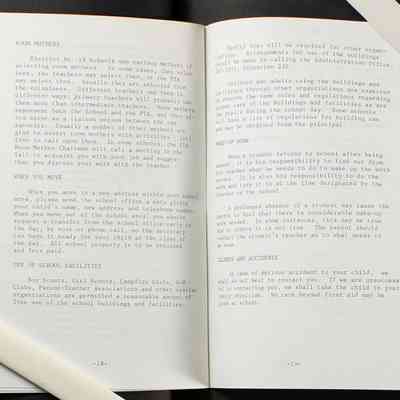 ROOM MOTHERS
District No. 12 schools use various methods of
selecting room mothers. In some cases, the
teachers may select them, or the PTA
may select them. Usually they are selected from
the volunteers. Different teachers use them in
different ways; primary teachers will probably use
them more than intermediate teachers. Room mothers
represent both the School and the PTA, and
serve as a liaison person between the
parents. Usually a number of other mothers are
glad to assist room mothers with activities.
to call upon them. In some schools, the PTA
Room Mother Chairman will call a meeting in the
fall to acquaint you with your job and suggest
that you discuss your work with the teacher.
WHEN YOU MOVE
When you move to a new address within your school
area, please send the school office a note giving
your child's name, new address and telephone number.
When you move out of the school area, you should
request a transfer from the school office early in
the day, by note or phone call, so the secretary
can have it ready for your child at the close of
the day. All school property is to be returned
and fees paid.
USE OF SCHOOL FACILITIES
Boy Scouts, Girl Scouts, Campfire Girls, 4-H
Clubs, Parent-Teacher Associations and other similar
organizations are permitted a reasonable amount of
free use of the school buildings and facilities.
-16-
Rental fees will be required for other organi-
zations. Arrangements for use of the buildings
will be made by calling the Administration Office,
Extension
Children and adults using the buildings and
facilities through other organizations are expected
to observe the same rules and regulations regarding
the care of the buildings and facilities as are
in force during the school day. Some schools
have a list of regulations for building use
and may be obtained from the principal.
MAKE-UP WORK
When a student returns to school after being
absent, it is his responsibility to find out from
his teacher what he needs to do to make up the work
missed. It is also his responsibility to do the
work and turn it in at the time designated by the
teacher or the school.
A prolonged absence of a student may cause the
parent to feel that there is considerable make-up
work needed. In some instances, this may be true
in others it is not true. The parent should
contact the student's teacher as to what needs to
be done.
ILLNESS AND ACCIDENTS
In case of serious accident to your child, we
shall do our best to contact you. If we are unsuccessful
in contacting you, we shall take the child to your
family physician. No care beyond first aid may be
given at school.